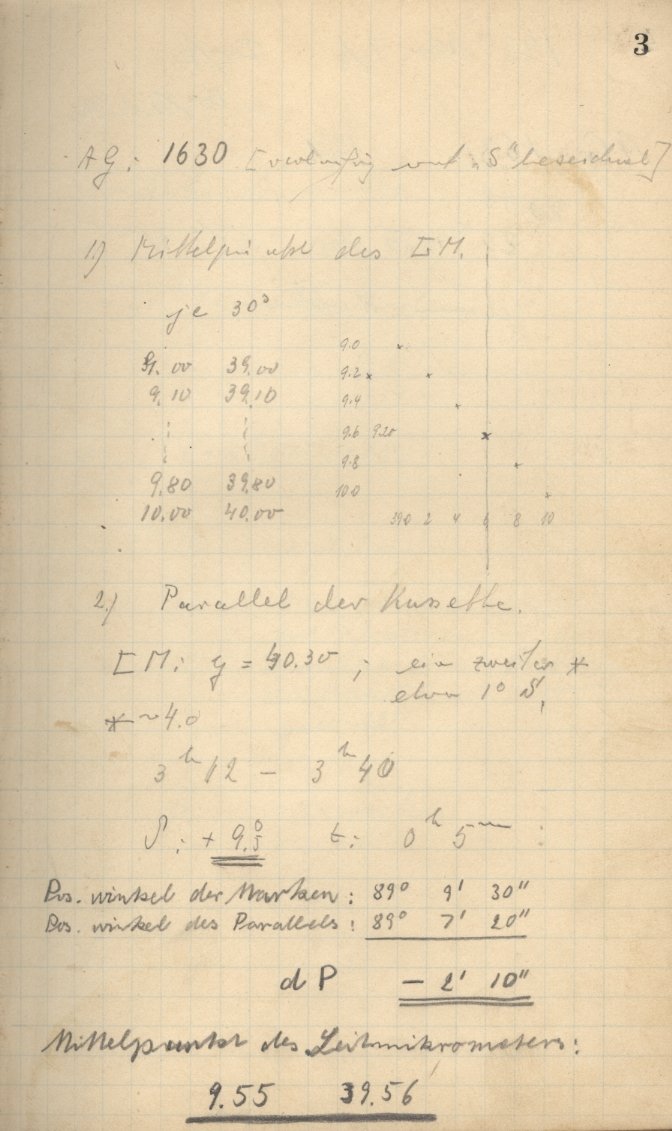 3
AG: 1630 [vorläufig mit "S" bezeichnet]
1.) Mittelpunkt des LM.
je 30ˢ
9.0
9.00 39.00 9.2
9.10 39.10 9.4
9.6 9.20
9.8
9.80 39.80 10.0
10.00 40.00 39.0 2 4 6 8 10
2.) Parallel der Kassette.
LM: y = 40.30 ; ein zweiter *
etwa 1° S,
* ~ 4.0
3ʰ 12 – 3ʰ 40
δ: + 9.°5 t: 0ʰ 5ᵐ
Pos. winkel der Marken: 89° 9' 30"
Pos. winkel des Parallels: 89° 7' 20"
dP – 2' 10"
Mittelpunkt des Leitmikrometers:
9.55 39.56